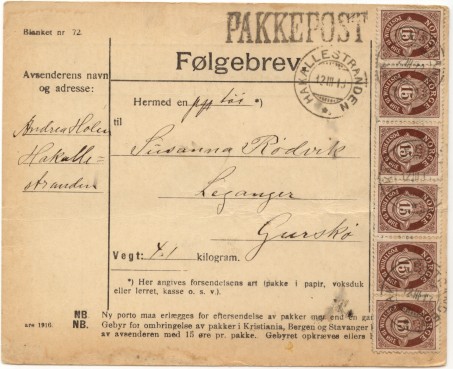 Blanket nr 72.
PAKKEPOST
Følgebrev
HAKALLESTRANDEN
12 III 15
Avsenderens navn
og adresse:
Andrea Holen
Hakalle-
stranden
Hermed en løs *)
til
Susanna Rødvik
Leganger
Gurskø
Vegt: 4.1 kilogram.
*) Her angives forsendelsens art (pakke i papir, voksduk
eller lerret, kasse o. s. v.).
NB. Ny porto maa erlægges for eftersendelse av pakker mot end en
ars 1910. NB. Gebyr for ombringelse av pakker i Kristiania, Bergen og Stavanger
av avsenderen med 15 øre pr. pakke. Gebyret opkræves ellers
NORGE
15
NORGE
15
NORGE
15
NORGE
15
NORGE
15
NORGE
15